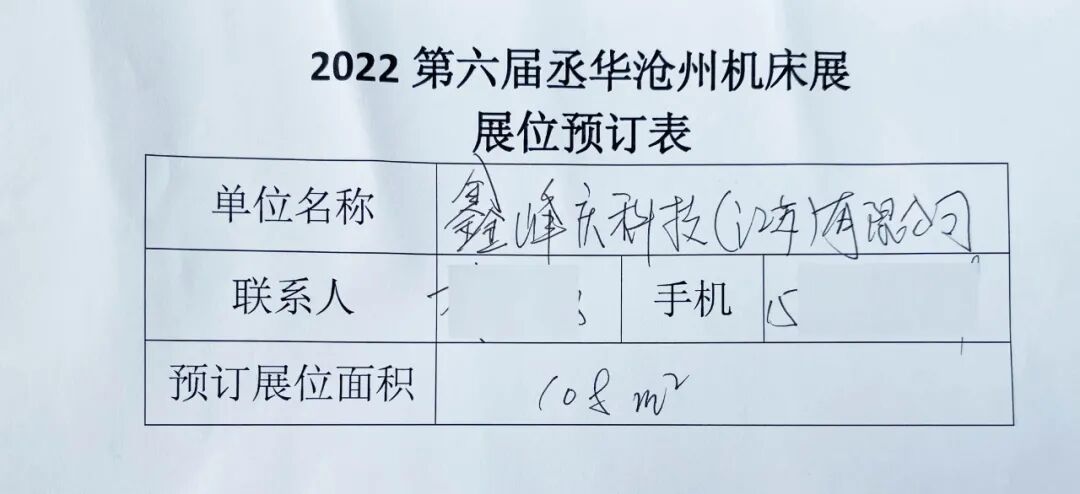 2022 第六届丞华沧州机床展
展位预订表
单位名称 鑫峰庆科技(江苏)有限公司
联系人 手机 15
预订展位面积 108 m²